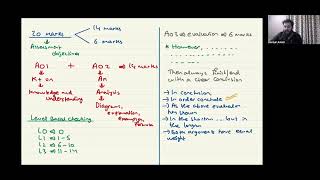 20 marks → 14 marks
→ 6 marks
Assessment
objectives
AO1 + AO2 ⇒ 14 marks
K + an An
Knowledge and Analysis
understanding
Diagram,
explanation,
example,
formula
Level Based Marking
L0 → 0
L1 → 1-5
L2 → 6-10
L3 → 11-14
AO3 ⇒ evaluation ⇒ 6 marks
* However, ...
Then always finish/end
with a clear conclusion
→ In conclusion,
→ In order conclude
→ As the above evaluation
has shown
→ In the shortrun .... but in
the longrun
→ Both arguments have equal
weight